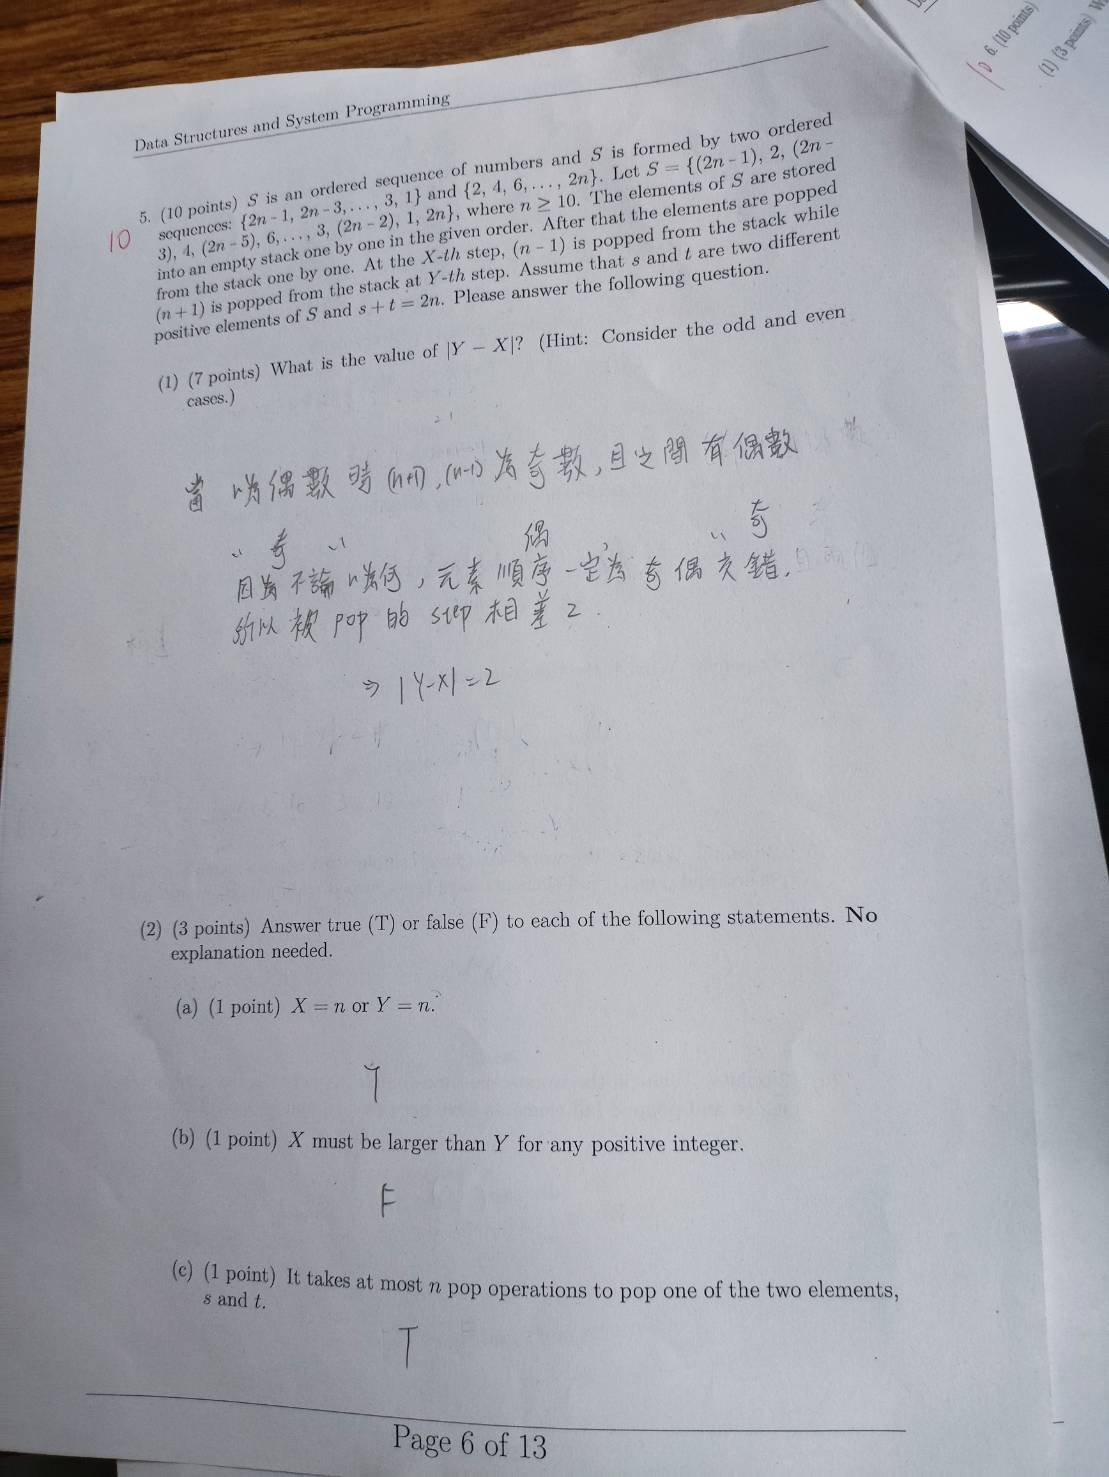 6. (10 points)
(1) (3 points) W
10
Data Structures and System Programming
10
5. (10 points) S is an ordered sequence of numbers and S is formed by two ordered
sequences: {2n − 1, 2n − 3, . . . , 3, 1} and {2, 4, 6, . . . , 2n}. Let S = {(2n − 1), 2, (2n −
3), 4, (2n − 5), 6, . . . , 3, (2n − 2), 1, 2n}, where n ≥ 10. The elements of S are stored
into an empty stack one by one in the given order. After that the elements are popped
from the stack one by one. At the X-th step, (n − 1) is popped from the stack while
(n + 1) is popped from the stack at Y-th step. Assume that s and t are two different
positive elements of S and s + t = 2n. Please answer the following question.
(1) (7 points) What is the value of |Y − X|? (Hint: Consider the odd and even
cases.)
當 n為偶數時 (n+1), (n-1) 為奇數, 且之間有偶數
" 奇 " 偶 " 奇
因為不論 n為何, 元素順序一定為奇偶交錯.
所以被 pop 的 step 相差 2.
⇒ |Y-X|=2
(2) (3 points) Answer true (T) or false (F) to each of the following statements. No
explanation needed.
(a) (1 point) X = n or Y = n.
T
(b) (1 point) X must be larger than Y for any positive integer.
F
(c) (1 point) It takes at most n pop operations to pop one of the two elements,
s and t.
T
Page 6 of 13